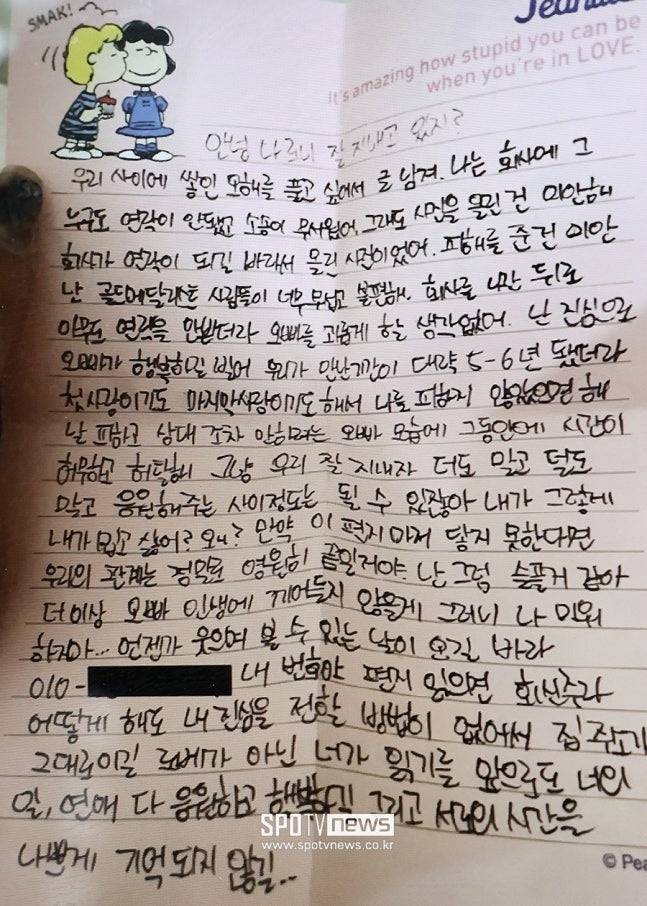 SMAK!
It's amazing how stupid you can be
when you're in LOVE.
안녕 나 잘 지내고 있지?
우리 사이에 쌓인 오해를 풀고 싶어서 글 남겨. 나는 회사에 그
누구도 연락이 안됐고 소송이 무서웠어, 그래도 사진을 올린 건 미안해
회사가 연락이 되길 바라서 올린 사진이었어. 피해를 준건 미안
난 골드메달리스트 사람들이 너무 무섭고 불편해. 회사를 나간 뒤로
아무도 연락을 안받더라 오빠를 괴롭게 할 생각없어. 난 진심으로
오빠가 행복하길 빌어 우리가 만난기간이 대략 5-6년 됐더라
첫사랑이기도 마지막사랑이기도 해서 나를 피하지 않았으면 해
날 피하고 상대 조차 안하려는 오빠 모습에 그동안에 시간이
허무하고 허탈해 그냥 우리 잘 지내자 더도 말고 덜도
말고 응원해주는 사이정도는 될 수 있잖아 내가 그렇게
내가 밉고 싫어? 만약 이 편지마저 닿지 못한다면
우리의 관계는 정말로 영원히 끝일거야. 난 그럼 슬플거 같아
더이상 오빠 인생에 끼어들지 않을게 그러니 나 미워
하지마... 언젠가 웃으며 볼 수 있는 날이 오길 바라
010- 내 번호야 편지 읽으면 회신주라
어떻게 해도 내 진심을 전할 방법이 없어서 집 주소가
그대로이길 로베가 아닌 너가 읽기를 앞으로도 너의
일, 연애 다 응원하고 그리고 서로의 시간을
나쁘게 기억되지 않길..
SPOTV news
www.spotvnews.co.kr